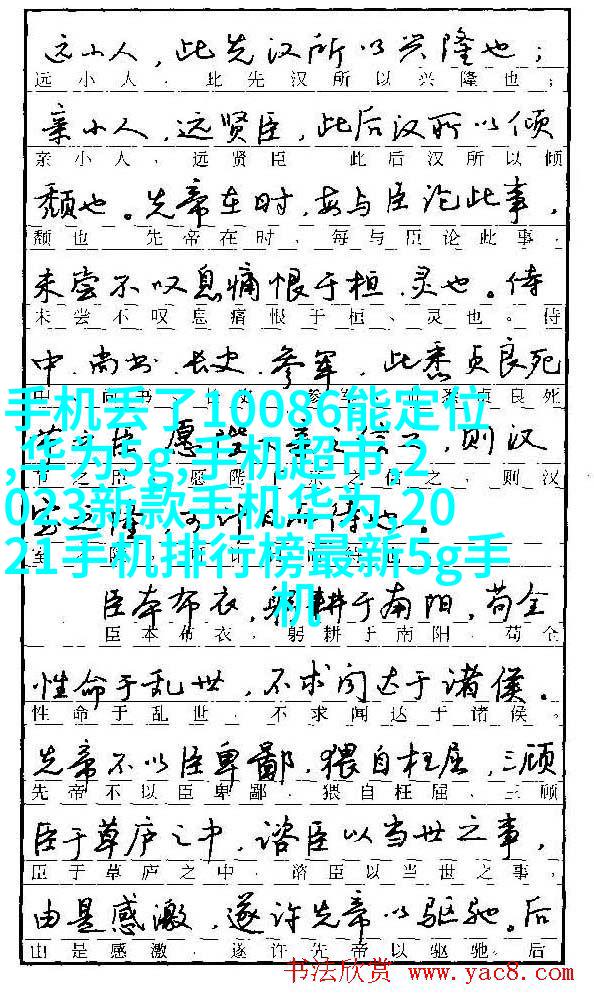 远小人，此先汉所以兴隆也；
远小人，此先汉所以兴隆也；
亲小人，远贤臣，此后汉所以倾
亲小人，远贤臣 此后汉所以倾
颓也。先帝在时，每与臣论此事，
颓也 先帝在时，每与臣论此事，
未尝不叹息痛恨于桓、灵也。侍
未尝不叹息痛恨于桓、灵也。侍
中、尚书、长史、参军，此悉贞良死
手机丢了10086能定位
,华为5g,手机超市,2
023新款手机华为,20
21手机排行榜最新5g手
机
臣，愿 则汉
节之臣 愿陛 亲之信之，则汉
室之隆，可计日而待也。
臣本布衣，躬耕于南阳，苟全
臣本布衣，躬耕于南阳 苟全
性命于乱世，不求闻达于诸侯。
性命于乱世，不求闻达于诸侯。
先帝不以臣卑鄙，猥自枉屈，三顾
先帝不以臣卑鄙，猥自枉屈、三顾
臣于草庐之中，谘臣以当世之事，
臣于草庐之中，谘臣以当世之事，
由是感激，遂许先帝以驱驰。后
由是感激，遂许先帝以驱驰。后
书法欣赏 www.yac8.com